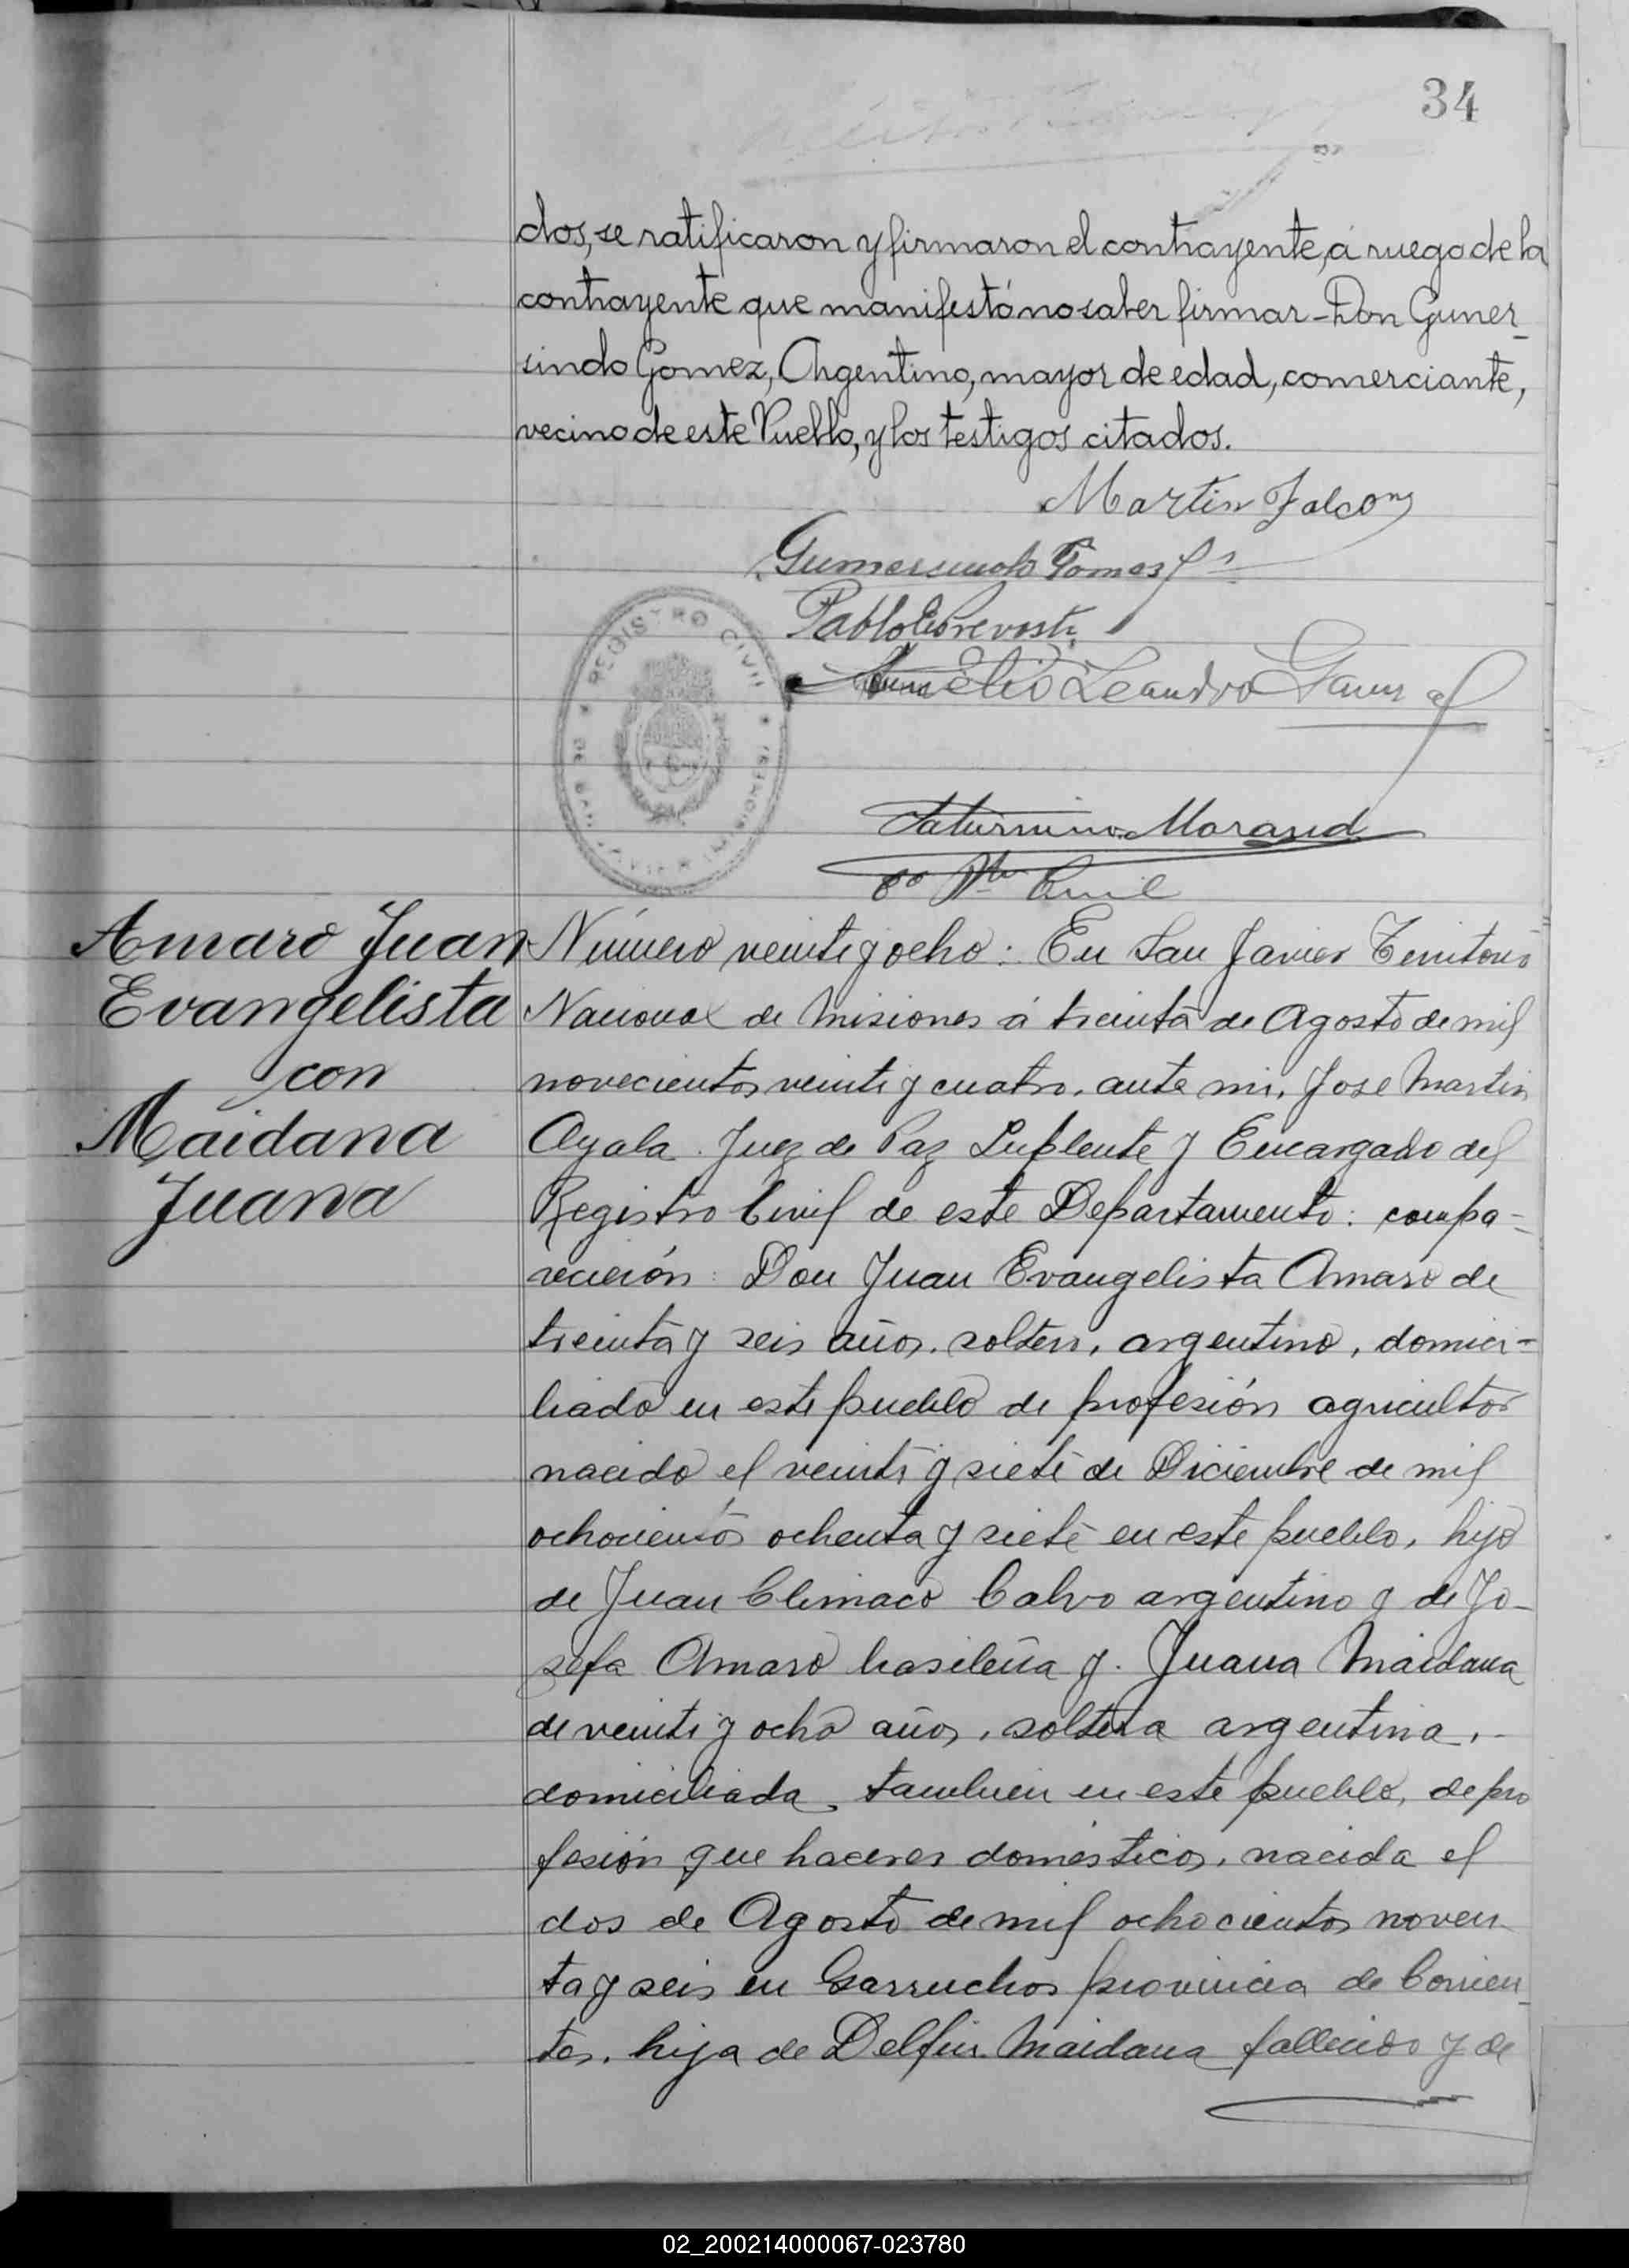 34
dos, se ratificaron y firmaron el contrayente, á ruego de la
contrayente que manifestó no saber firmar - Don Gumer-
sindo Gomez, Argentino, mayor de edad, comerciante,
vecino de este Pueblo, y los testigos citados.
Martin Falcon
Gumersindo Gomez
Pablo Prevosti
Leandro
REGISTRO CIVIL
Saturnino Morand
Civil
Amaro Juan
Evangelista
con
Maidana
Juana
Número veinti y ocho: En San Javier Territorio
Nacional de Misiones á treinta de Agosto de mil
novecientos veinti y cuatro, ante mi, Jose Martin
Ayala Juez de Paz Suplente y Encargado del
Registro Civil de este Departamento: compa-
recieron: Don Juan Evangelista Amaro de
treinta y seis años, soltero, argentino, domici-
liado en este pueblo de profesión agricultor
nacido el veinti y siete de Diciembre de mil
ochocientos ochenta y siete en este pueblo, hijo
de Juan Climaco Calvo argentino y de Jo-
sefa Amaro brasileña y Juana Maidana
de veinti y ocho años, soltera argentina,
domiciliada tambien en este pueblo, de pro
fesión que haceres domésticos, nacida el
dos de Agosto de mil ochocientos noven
ta y seis en Garruchos provincia de Corrien-
tes, hija de Delfin Maidana fallecido y de
02_200214000067-023780